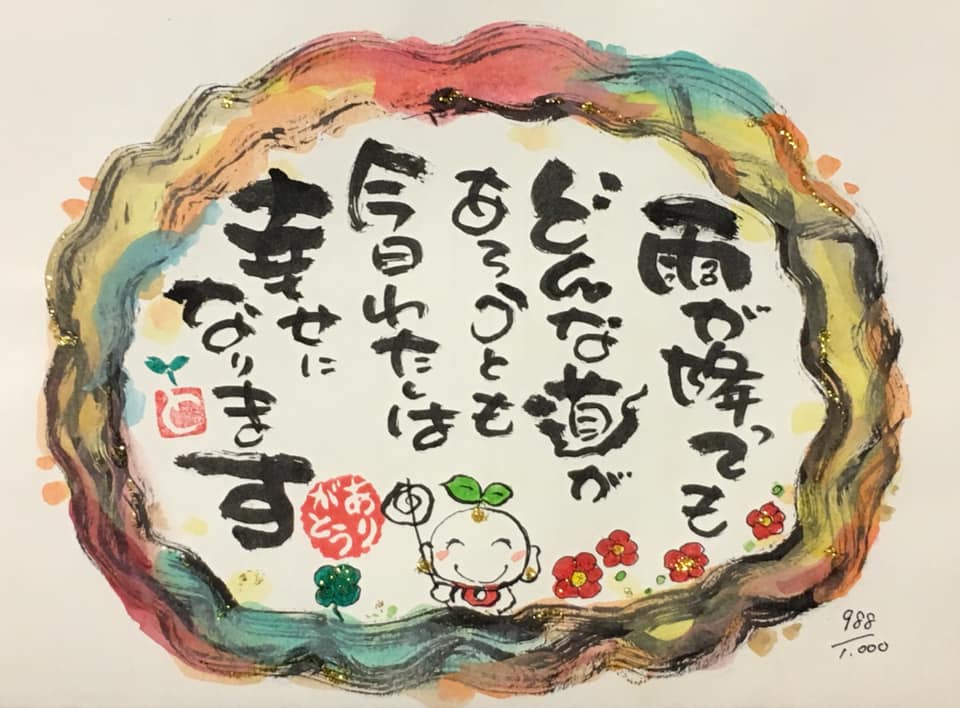 雨が降っても
どんな道が
あろうとも
今日わたしは
幸せに
なります
ありがとう
と
988
1.000